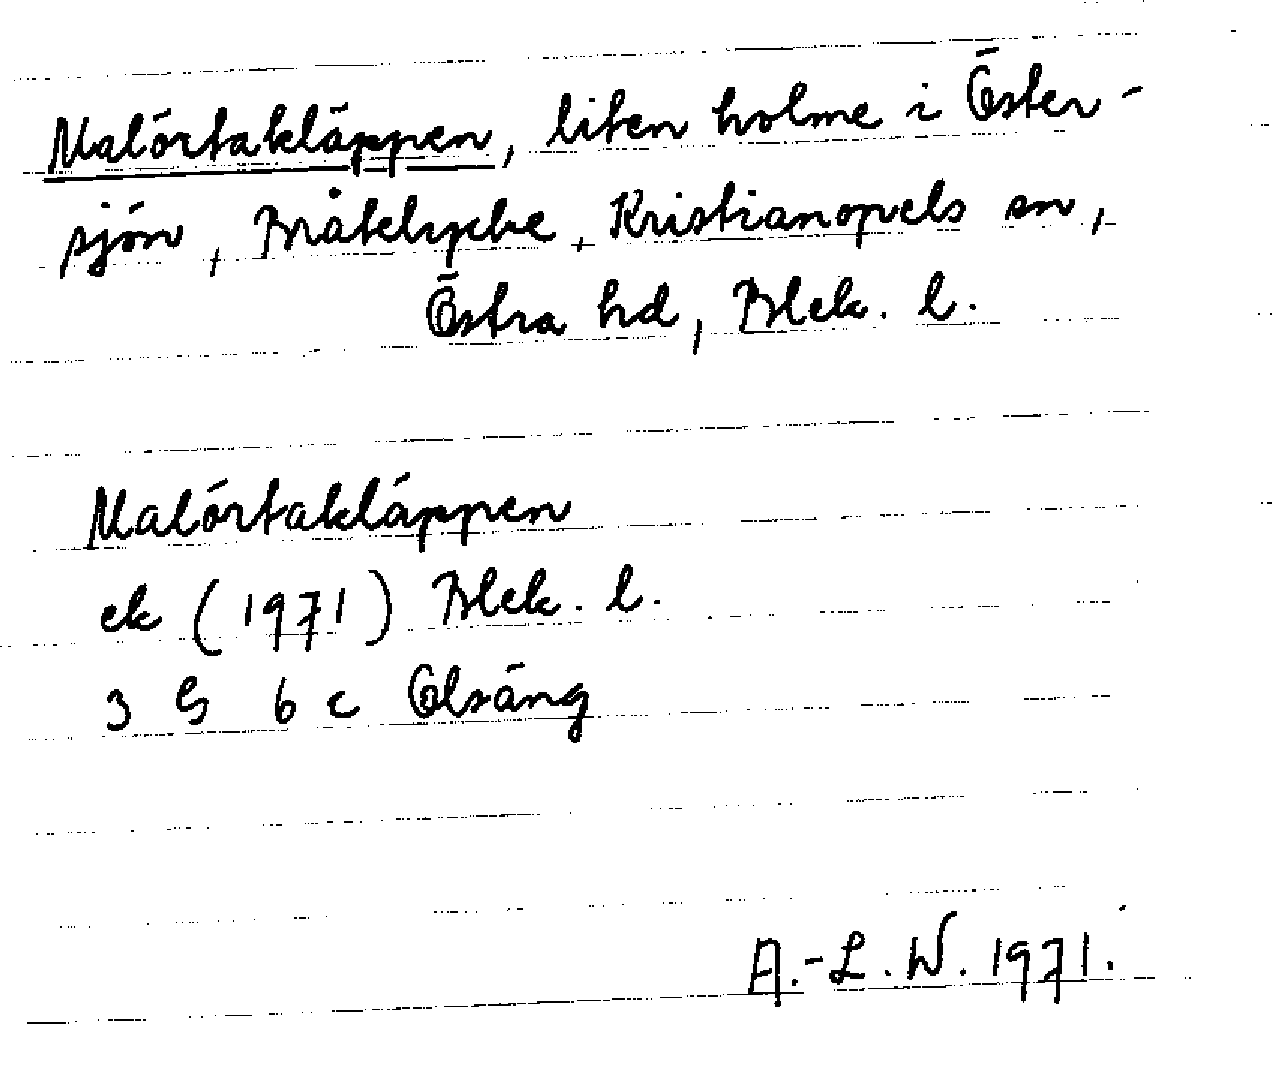 Malörtakläppen, liten holme i Öster-
sjön, Bråtelycke, Kristianopels sn,
Östra hd, Blek. l.
Malörtakläppen
ek (1971) Blek. l.
3 G 6 c Olsäng
A.-L. W. 1971.